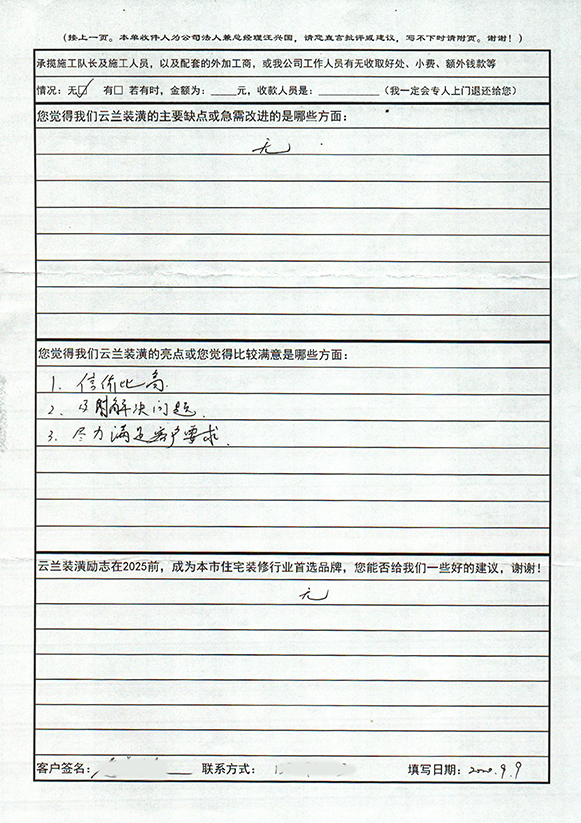 (接上一页。本单收件人为公司法人兼总经理汪兴国，请您直言批评或建议，写不下时请附页。谢谢！)
承揽施工队长及施工人员，以及配套的外加工商，或我公司工作人员有无收取好处、小费、额外钱款等
情况：无☑ 有□ 若有时，金额为：____元，收款人员是：__________（我一定会专人上门退还给您）
您觉得我们云兰装潢的主要缺点或急需改进的是哪些方面：
无
您觉得我们云兰装潢的亮点或您觉得比较满意是哪些方面：
1. 信价比高.
2. 及时解决问题.
3. 尽力满足客户要求.
云兰装潢励志在2025前，成为本市住宅装修行业首选品牌，您能否给我们一些好的建议，谢谢！
无
客户签名： 联系方式： 填写日期：2020.9.9